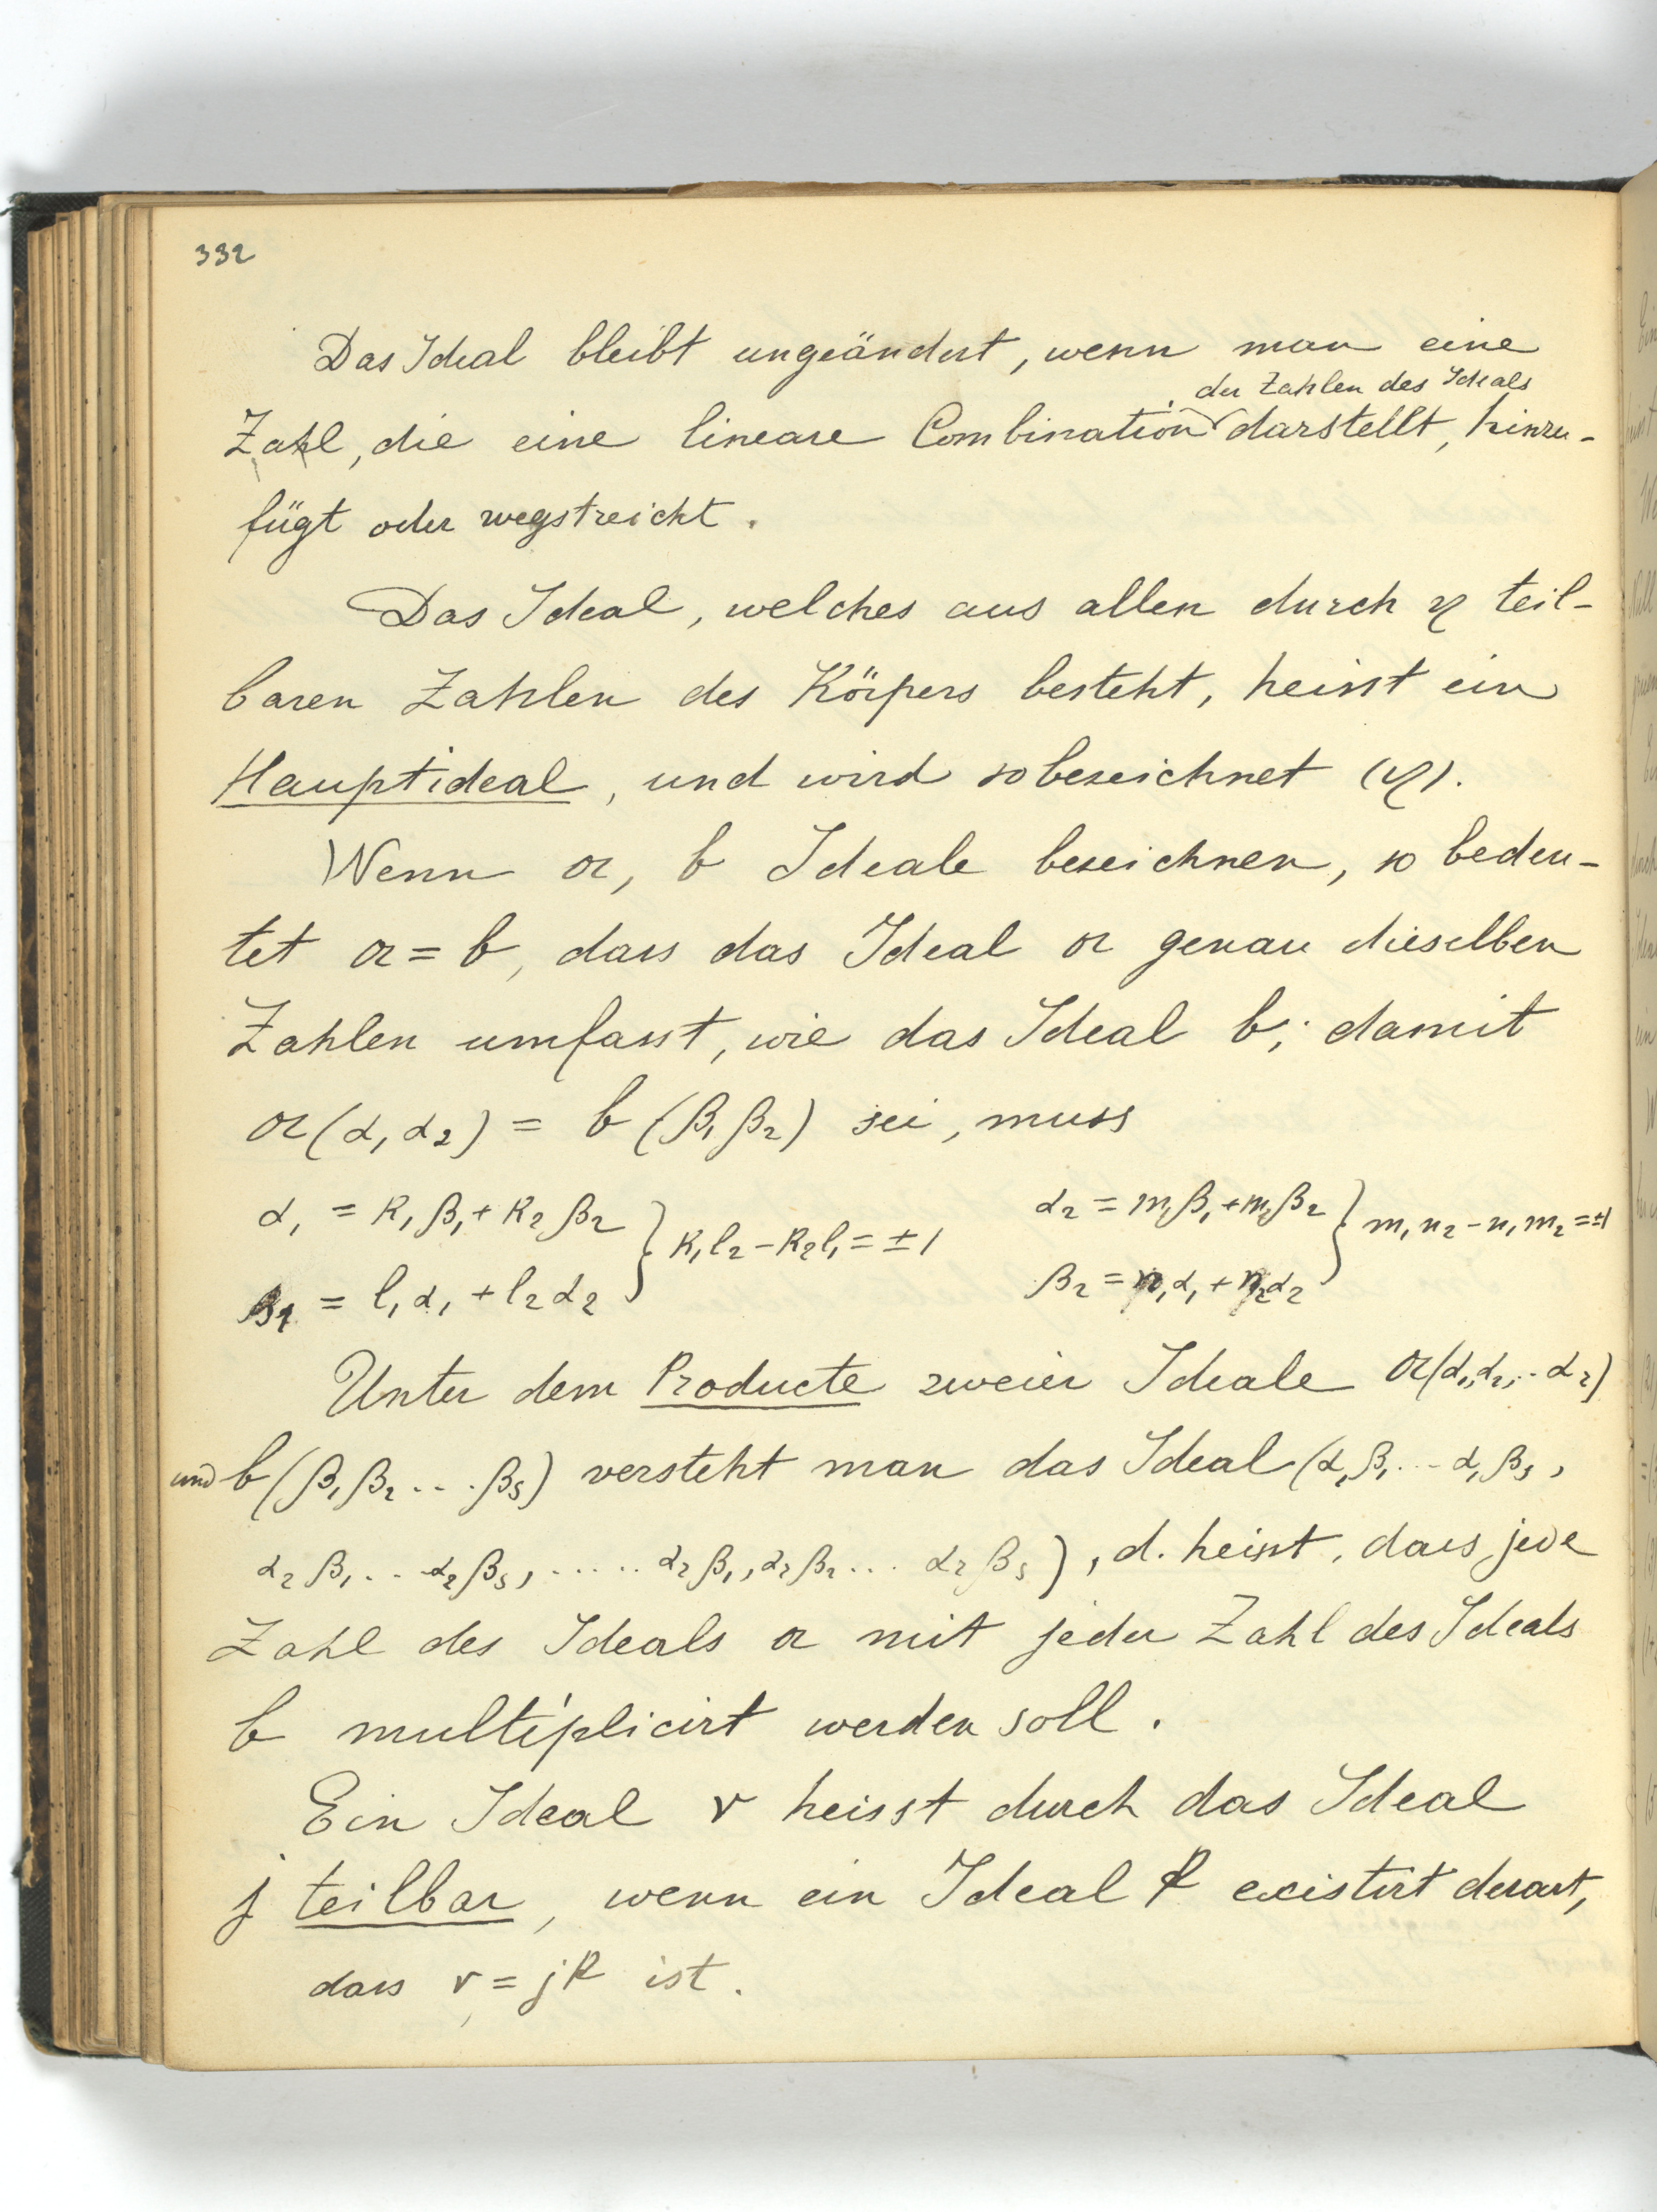 332
Das Ideal bleibt ungeändert, wenn man eine
der Zahlen des Ideals
Zahl, die eine lineare Combination darstellt, hinzu-
fügt oder wegstreicht.
Das Ideal, welches aus allen durch η teil-
baren Zahlen des Körpers besteht, heisst ein
Hauptideal, und wird so bezeichnet (η).
Wenn a, b Ideale bezeichnen, so bedeu-
tet a = b, dass das Ideal a genau dieselben
Zahlen umfasst, wie das Ideal b; damit
a(α₁ α₂) = b(β₁ β₂) sei, muss
α₁ = k₁β₁ + k₂β₂ } k₁l₂ - k₂l₁ = ±1 α₂ = m₁β₁ + m₂β₂ } m₁n₂ - n₁m₂ = ±1
β₁ = l₁α₁ + l₂α₂ β₂ = n₁α₁ + n₂α₂
Unter dem Producte zweier Ideale a(α₁, α₂, .. αᵣ)
und b(β₁ β₂ .... βₛ) versteht man das Ideal (α₁β₁ ... α₁βₛ,
α₂β₁ .. α₂βₛ, ...... αᵣβ₁, αᵣβ₂ ... αᵣβₛ), d. heisst, dass jede
Zahl des Ideals a mit jeder Zahl des Ideals
b multiplicirt werden soll.
Ein Ideal r heisst durch das Ideal
j teilbar, wenn ein Ideal k existirt derart,
dass r = jk ist.